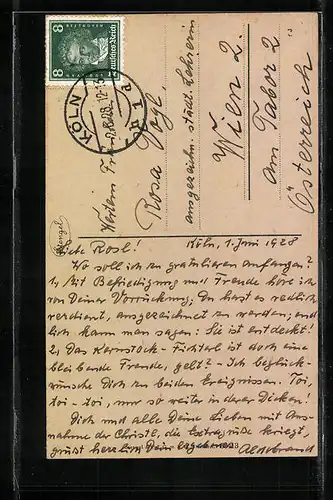 8 BEETHOVEN 8
Deutsches Reich
KÖLN
Rosa Vogl
ausgezeichn. städt. Lehrerin
Wien 2.
Am Tabor 2
Österreich
Stengel
Köln, 1. Juni 1928
Liebe Rosl!
Wo soll ich zu gratulieren anfangen?
1, Mit Befriedigung und Freude höre ich
von Deiner Vorrückung; Du hast es redlich
verdient, ausgezeichnet zu werden; end-
lich kann man sagen: Sie ist entdeckt!
2, Das Kernstock-Fichterl ist doch eine
bleibende Freude, gelt? - Ich beglück-
wünsche Dich zu beiden Ereignissen. Toi,
toi - toi, nur so weiter in derer Dicken!
Dich und alle Deine Lieben mit Aus-
nahme der Christl, die Extragrüße kriegt,
grüßt herzlich Dein ergebener
Aldebrand